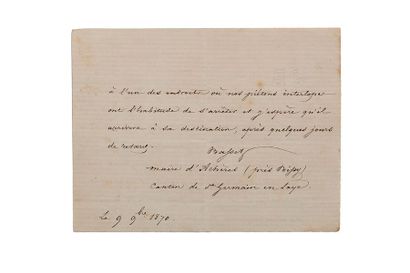 à l'un des endroits où nos piétons interlope
ont l'habitude de s'arrêter et j'espère qu'il
arrivera à sa destination, après quelques jours
de retard.
maire d'Achères (près Poissy)
Canton de St Germain en Laye
Le 9 9bre 1870.